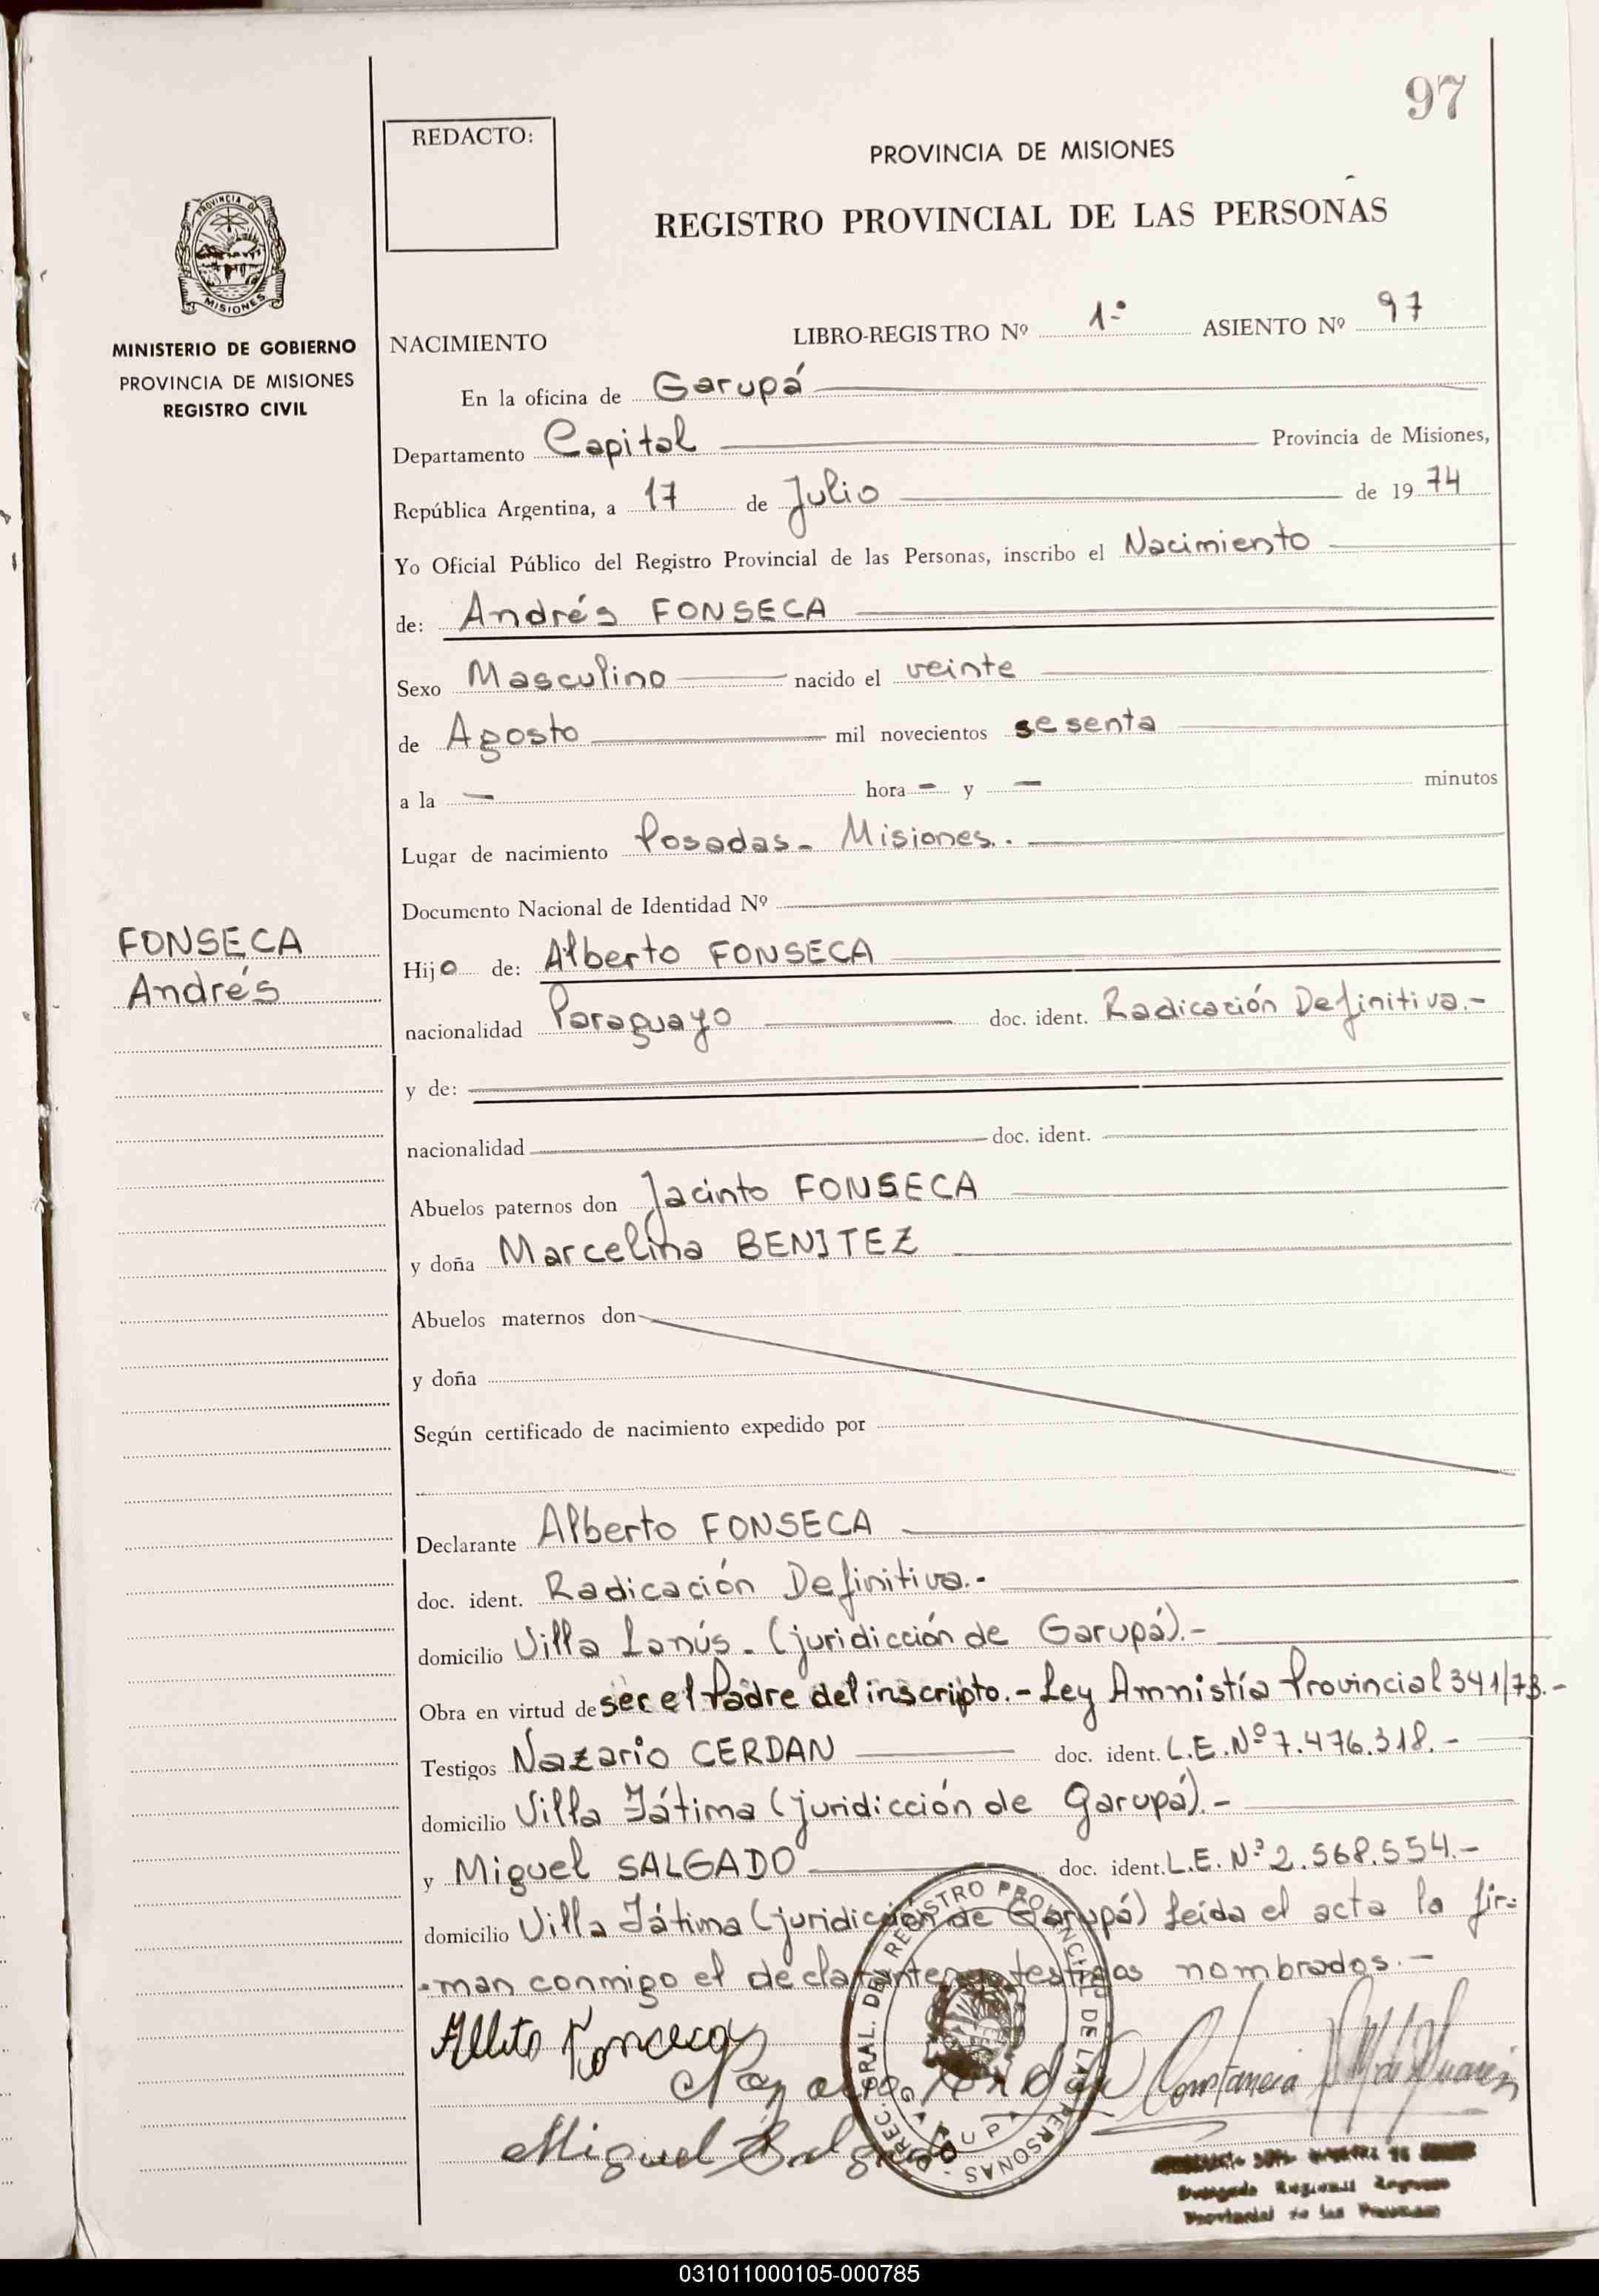 97
REDACTO:
PROVINCIA DE MISIONES
REGISTRO PROVINCIAL DE LAS PERSONAS
PROVINCIA DE
MISIONES
MINISTERIO DE GOBIERNO
PROVINCIA DE MISIONES
REGISTRO CIVIL
NACIMIENTO LIBRO-REGISTRO Nº 1º ASIENTO Nº 97
En la oficina de Garupá
Departamento Capital Provincia de Misiones,
República Argentina, a 17 de Julio de 1974
Yo Oficial Público del Registro Provincial de las Personas, inscribo el Nacimiento
de: Andrés FONSECA
Sexo Masculino nacido el veinte
de Agosto mil novecientos sesenta
a la — hora — y — minutos
Lugar de nacimiento Posadas - Misiones.-
Documento Nacional de Identidad Nº
FONSECA
Andrés
Hijo de: Alberto FONSECA
nacionalidad Paraguayo doc. ident. Radicación Definitiva.-
y de:
nacionalidad doc. ident.
Abuelos paternos don Jacinto FONSECA
y doña Marcelina BENITEZ
Abuelos maternos don
y doña
Según certificado de nacimiento expedido por
Declarante Alberto FONSECA
doc. ident. Radicación Definitiva.-
domicilio Villa Lanús - (juridicción de Garupá).-
Obra en virtud de ser el Padre del inscripto.- Ley Amnistía Provincial 341/73.-
Testigos Nazario CERDAN doc. ident. L.E. Nº 7.476.318.-
domicilio Villa Fátima (juridicción de Garupá).-
y Miguel SALGADO doc. ident. L.E. Nº 2.568.554.-
domicilio Villa Fátima (juridicción de Garupá) leída el acta la fir=
=man conmigo el declarante y testigos nombrados.-
DIREC. GRAL. DEL REGISTRO PROVINCIAL DE LAS PERSONAS
Alberto Fonceca
Constancia
Miguel Salgado
Provincial de las Personas
031011000105-000785